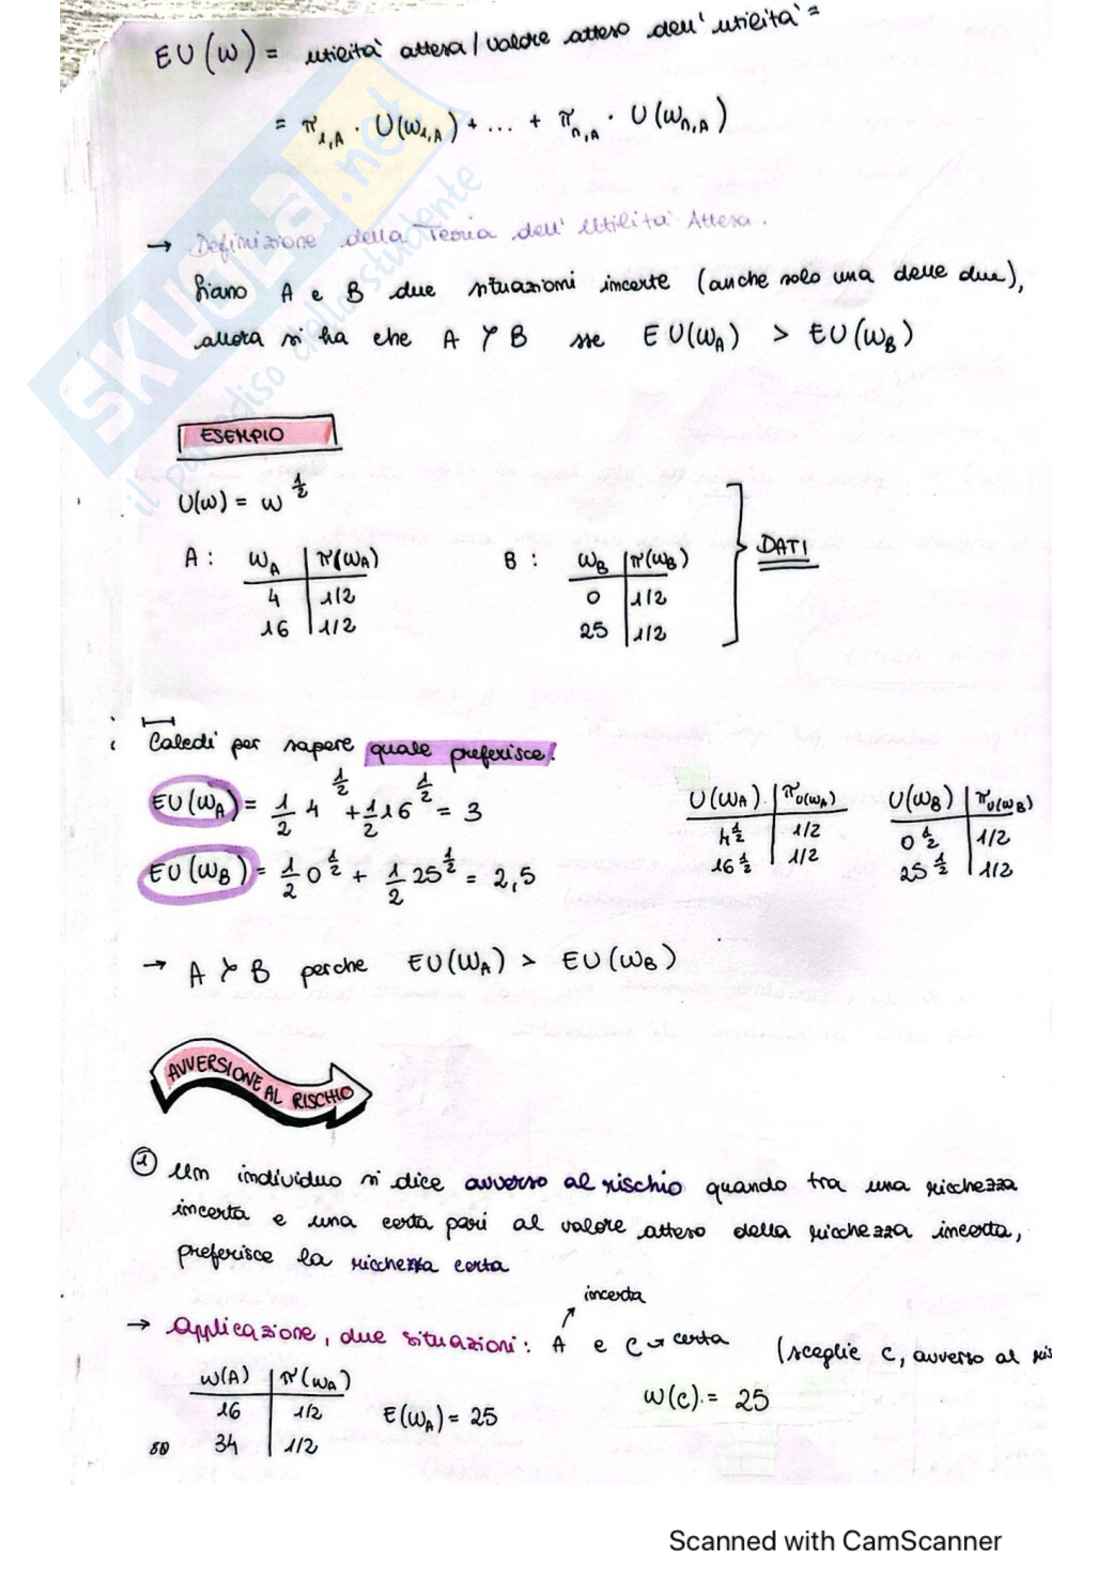 EU(w) = utilità attesa / valore atteso dell' utilità =
= π1,A · U(w1,A) + ... + πn,A · U(wn,A)
SKUOLA.net
il paradiso dello studente
→ Definizione della Teoria dell' Utilità Attesa.
Siano A e B due situazioni incerte (anche solo una delle due),
allora si ha che A ≻ B sse EU(wA) > EU(wB)
ESEMPIO
U(w) = w^1/2
A: wA | π(wA) B: wB | π(wB) } DATI
4 | 1/2 0 | 1/2
16 | 1/2 25 | 1/2
Calcoli per sapere quale preferisce:
EU(wA) = 1/2 4^1/2 + 1/2 16^1/2 = 3
EU(wB) = 1/2 0^1/2 + 1/2 25^1/2 = 2,5
U(wA) | πU(wA) U(wB) | πU(wB)
4^1/2 | 1/2 0^1/2 | 1/2
16^1/2 | 1/2 25^1/2 | 1/2
→ A ≻ B perche EU(wA) > EU(wB)
AVVERSIONE AL RISCHIO
① Um individuo si dice avverso al rischio quando tra una ricchezza
incerta e una certa pari al valore atteso della ricchezza incerta,
preferisce la ricchezza certa
incerta
→ Applicazione, due situazioni: A e C → certa (sceglie C, avverso al ris
w(A) | π(wA) w(C) = 25
16 | 1/2 E(wA) = 25
34 | 1/2
Scanned with CamScanner